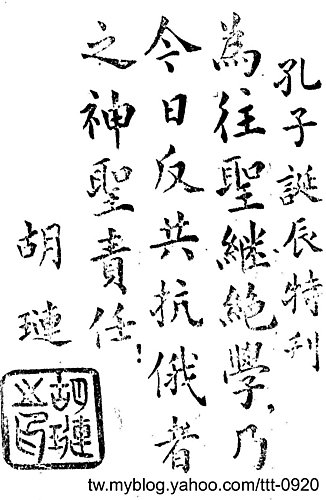 孔子誕辰特刋
為往聖繼絕學，乃
今日反共抗俄者
之神聖責任！
胡璉
胡璉之印
tw.myblog.yahoo.com/ttt-0920